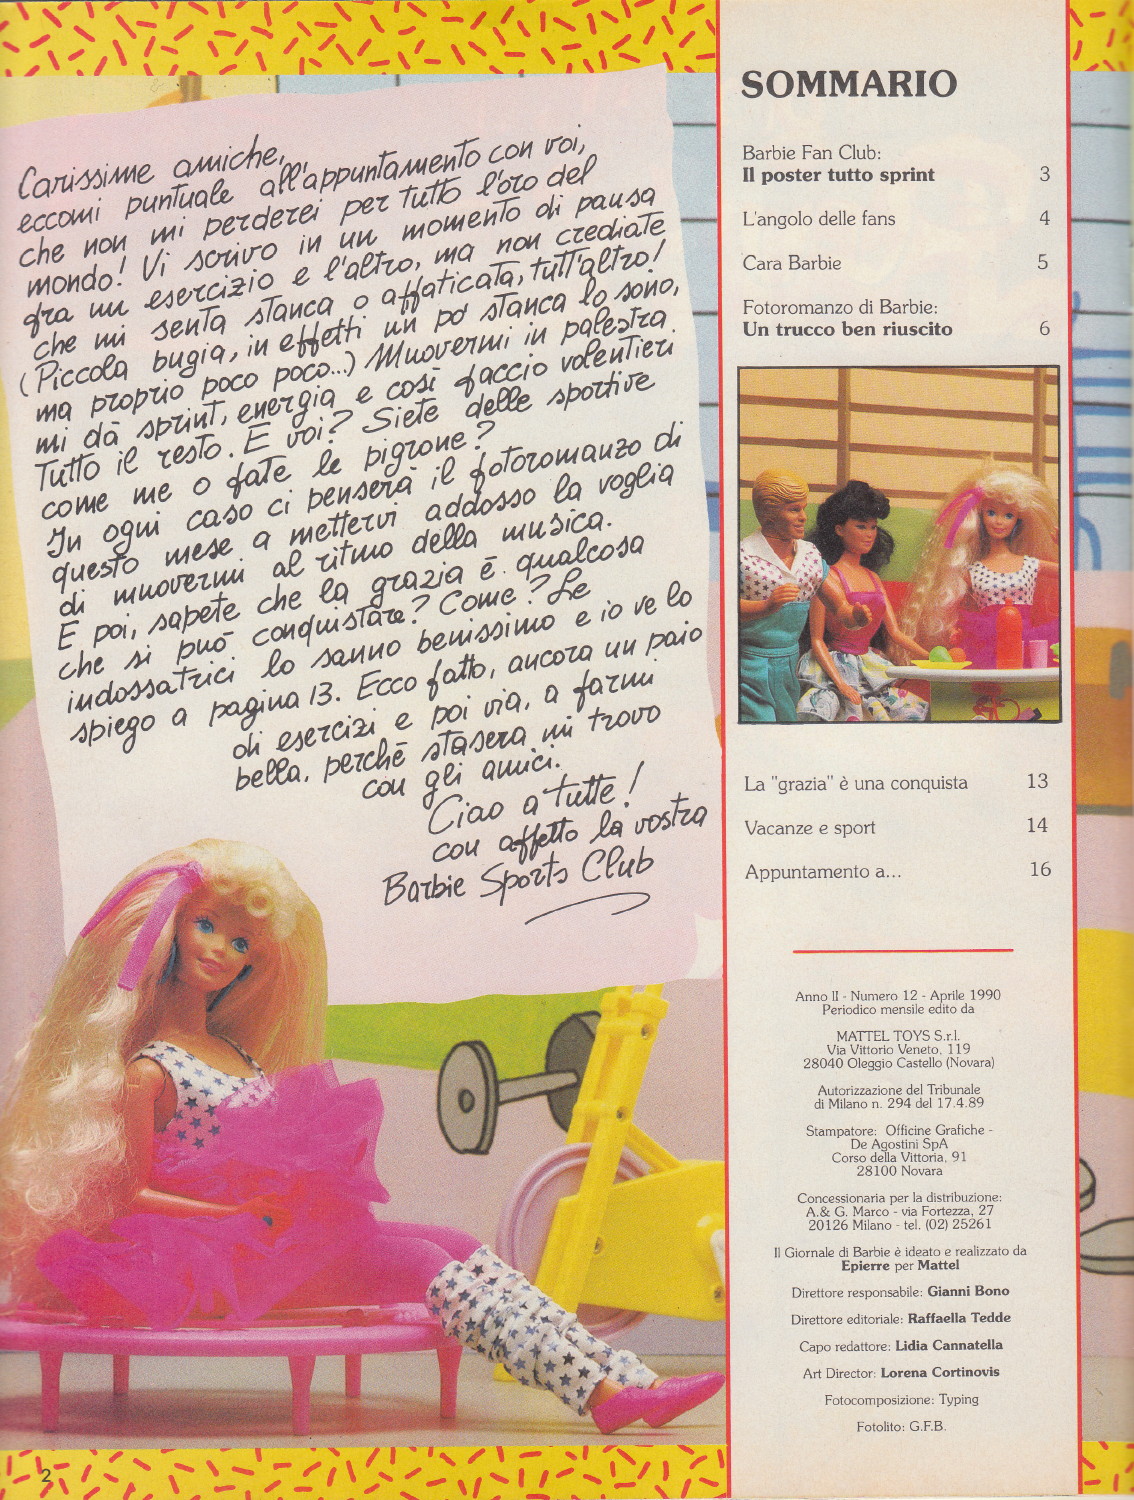 Carissime amiche,
eccomi puntuale all'appuntamento con voi,
che non mi perderei per tutto l'oro del
mondo! Vi scrivo in un momento di pausa
fra un esercizio e l'altro, ma non crediate
che mi senta stanca o affaticata, tutt'altro!
(Piccola bugia, in effetti un po' stanca lo sono,
ma proprio poco poco...) Muovermi in palestra
mi dà sprint, energia e così faccio volentieri
tutto il resto. E voi? Siete delle sportive
come me o fate le pigrone?
In ogni caso ci penserà il fotoromanzo di
questo mese a mettervi addosso la voglia
di muovermi al ritmo della musica.
E poi, sapete che la grazia è qualcosa
che si può conquistare? Come? Le
indossatrici lo sanno benissimo e io ve lo
spiego a pagina 13. Ecco fatto, ancora un paio
di esercizi e poi via, a farmi
bella, perché stasera mi trovo
con gli amici.
Ciao a tutte!
con affetto la vostra
Barbie Sports Club
2
SOMMARIO
Barbie Fan Club:
Il poster tutto sprint 3
L'angolo delle fans 4
Cara Barbie 5
Fotoromanzo di Barbie:
Un trucco ben riuscito 6
La "grazia" è una conquista 13
Vacanze e sport 14
Appuntamento a... 16
Anno II - Numero 12 - Aprile 1990
Periodico mensile edito da
MATTEL TOYS S.r.l.
Via Vittorio Veneto, 119
28040 Oleggio Castello (Novara)
Autorizzazione del Tribunale
di Milano n. 294 del 17.4.89
Stampatore: Officine Grafiche -
De Agostini SpA
Corso della Vittoria, 91
28100 Novara
Concessionaria per la distribuzione:
A.& G. Marco - via Fortezza, 27
20126 Milano - tel. (02) 25261
Il Giornale di Barbie è ideato e realizzato da
Epierre per Mattel
Direttore responsabile: Gianni Bono
Direttore editoriale: Raffaella Tedde
Capo redattore: Lidia Cannatella
Art Director: Lorena Cortinovis
Fotocomposizione: Typing
Fotolito: G.F.B.